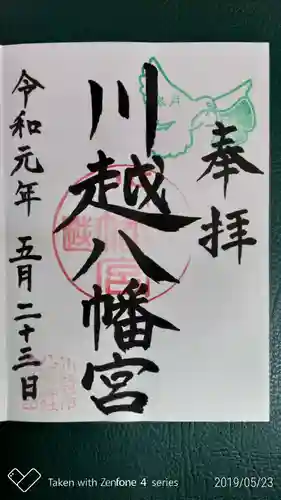 奉拝
川越八幡宮
令和元年 五月二十三日
Taken with Zenfone 4 series
2019/05/23